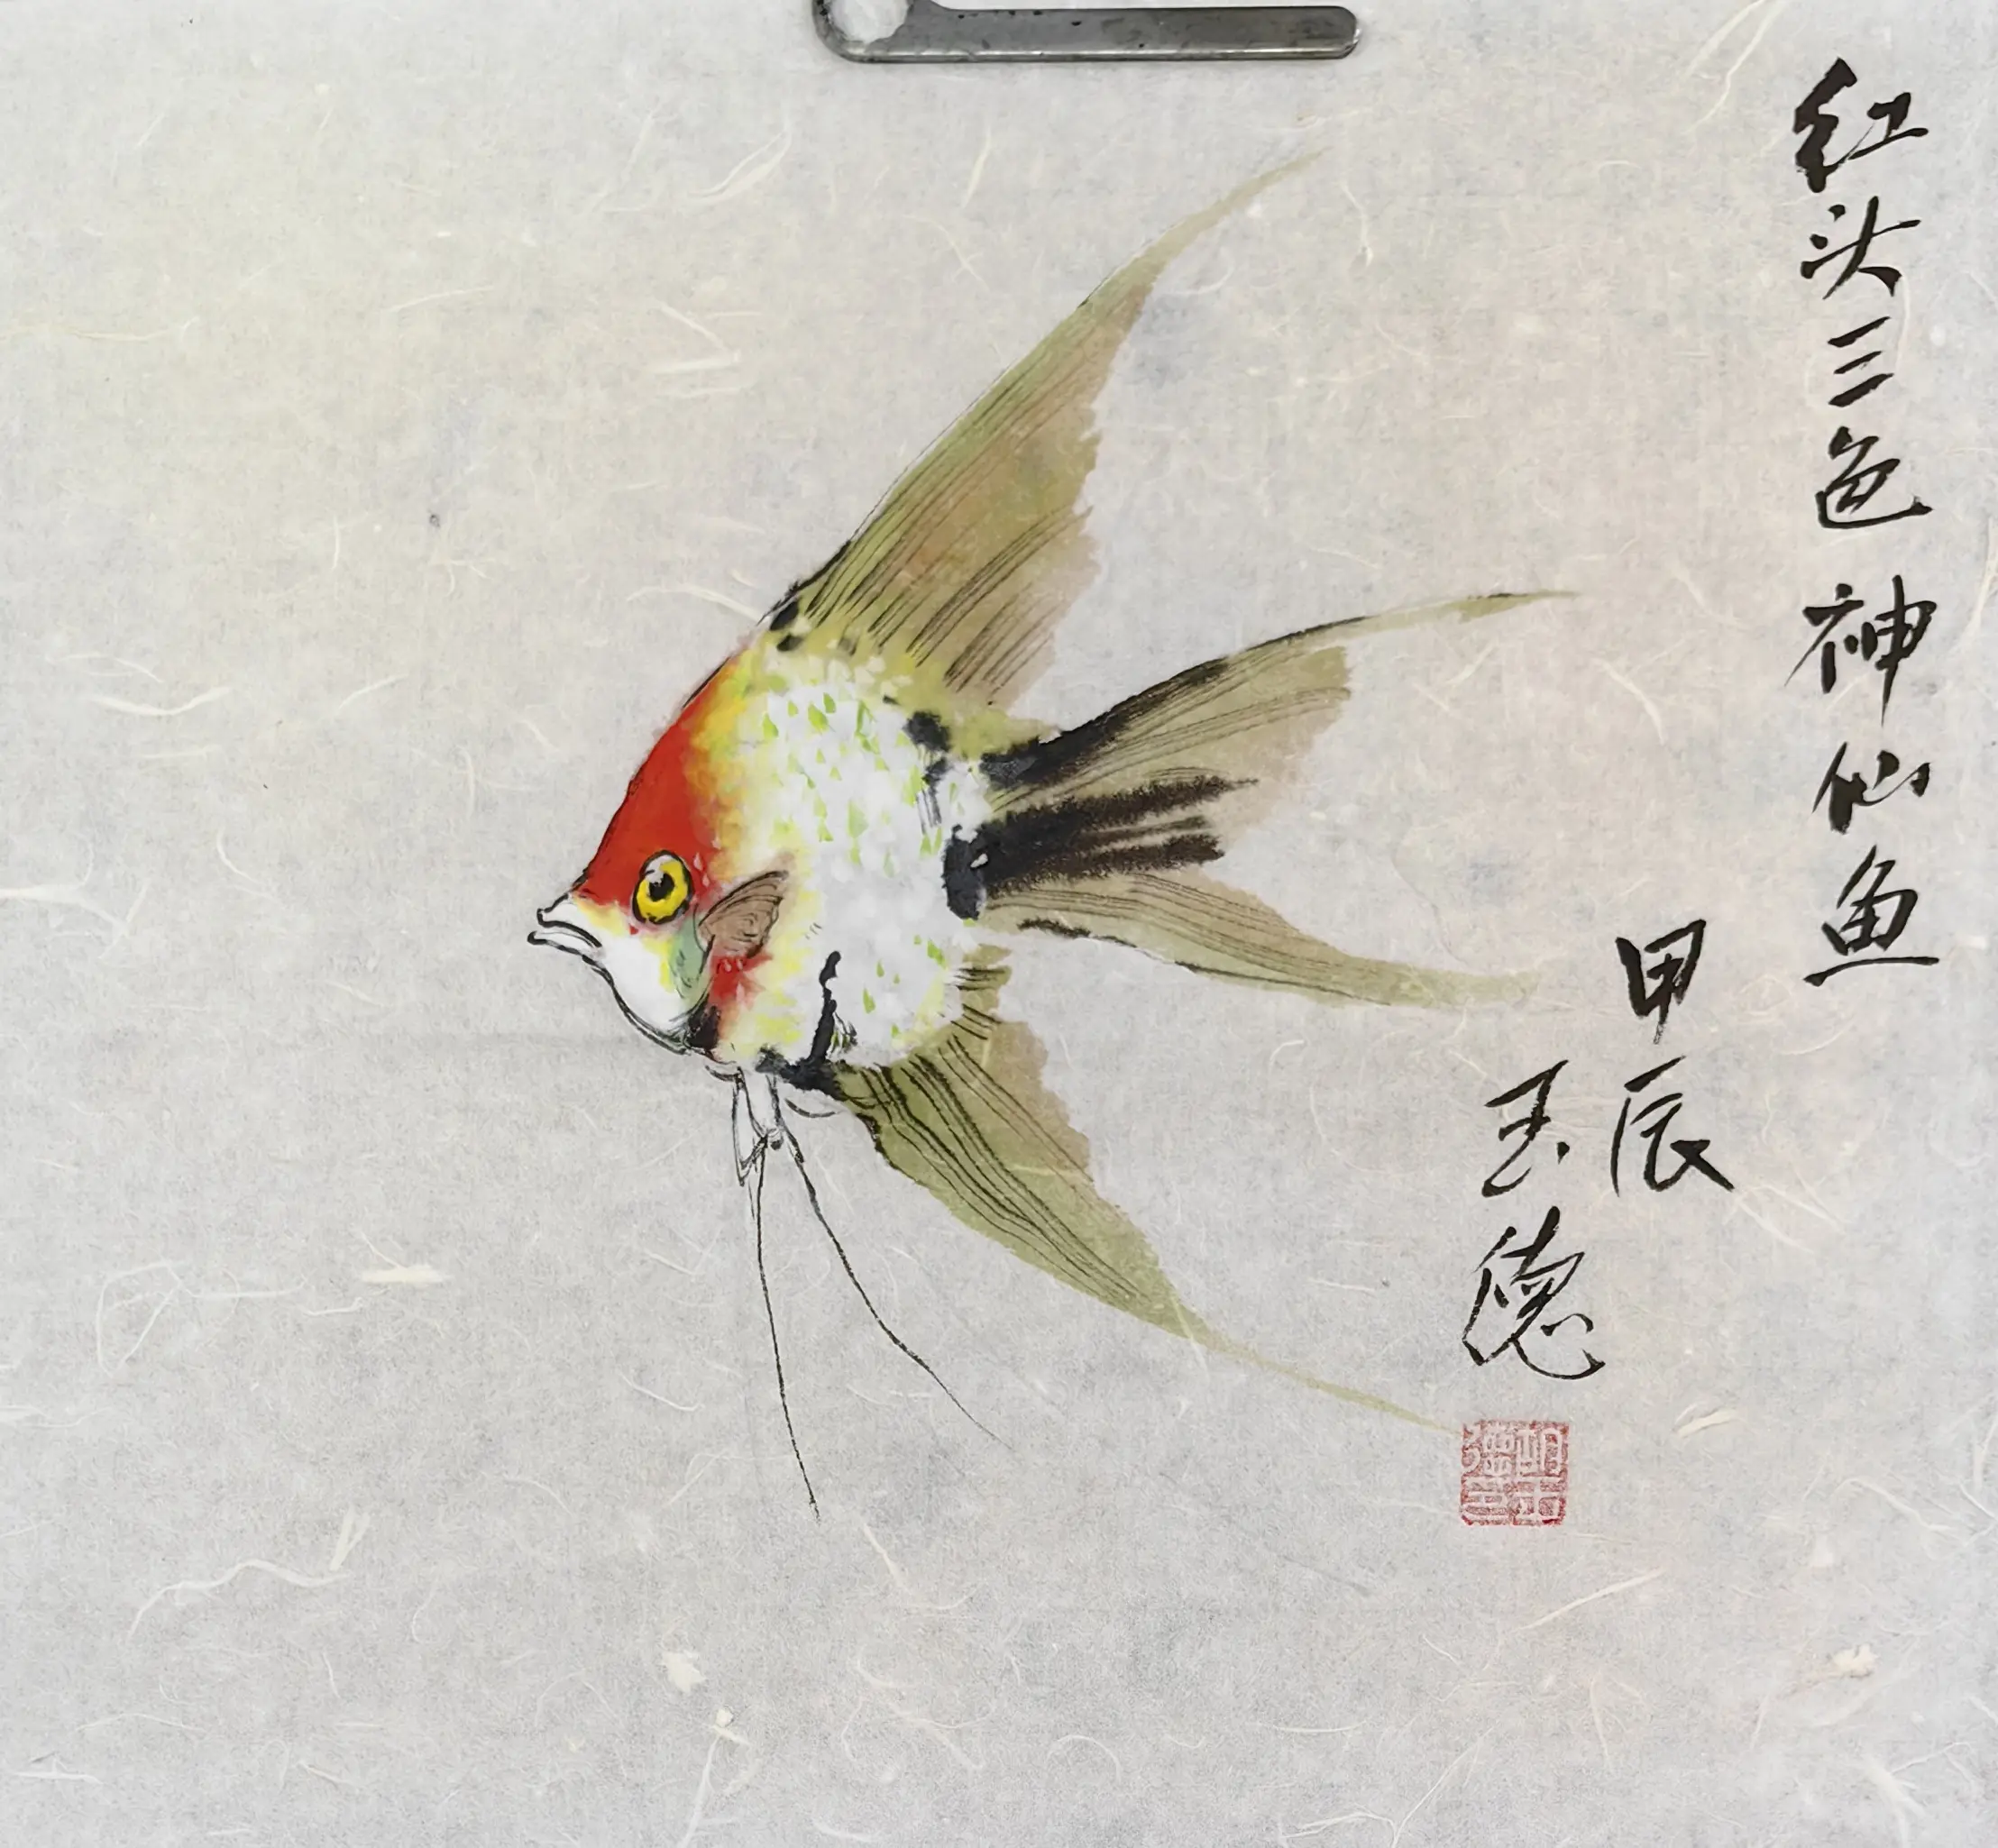 红头三色神仙鱼
甲辰
玉德